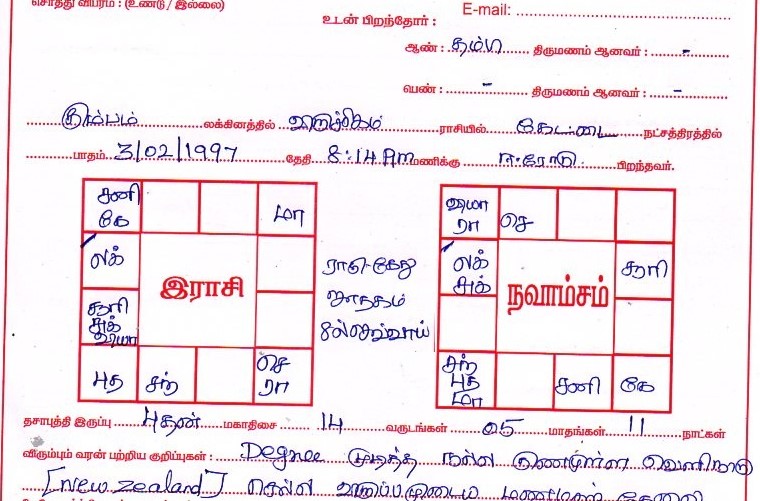 சொத்து விபரம் : (உண்டு / இல்லை)
E-mail:
உடன் பிறந்தோர் :
ஆண் : தம்பி திருமணம் ஆனவர் : -
பெண் : - திருமணம் ஆனவர் : -
கும்பம் லக்கினத்தில் விருச்சிகம் ராசியில் கேட்டை நட்சத்திரத்தில்
பாதம் 3/02/1997 தேதி 8:14 Am மணிக்கு ஈரோடு பிறந்தவர்.
சனி கே
மா
லக்
இராசி
சூரி சுக் வியா
புத
சந்
செ ரா
ராகு-கேது
ஜாதகம்
8ல் செவ்வாய்
வியா ரா
செ
லக் சுக்
நவாம்சம்
சூரி
சந் புத மா
சனி
கே
தசாபுத்தி இருப்பு புதன் மகாதிசை 14 வருடங்கள் 05 மாதங்கள் 11 நாட்கள்
விரும்பும் வரன் பற்றிய குறிப்புகள் : Degree முடித்த நல்ல குணமுள்ள வெளிநாடு
[New zealand] செல்ல விருப்பமுடைய மணமகள் தேவை